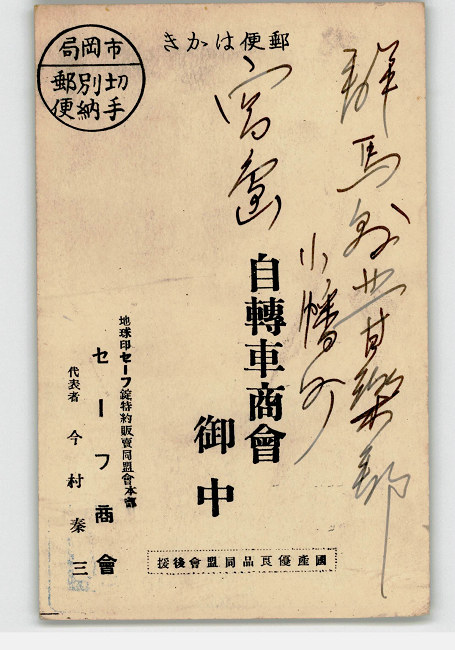 郵便はかき
市岡局
切手別納郵便
群馬縣北甘樂郡
小幡町
宮島
自轉車商會
御中
地球印セーフ錠特約販賣同盟會本部
セーフ商會
代表者 今村秦三
國產優良品同盟會後援